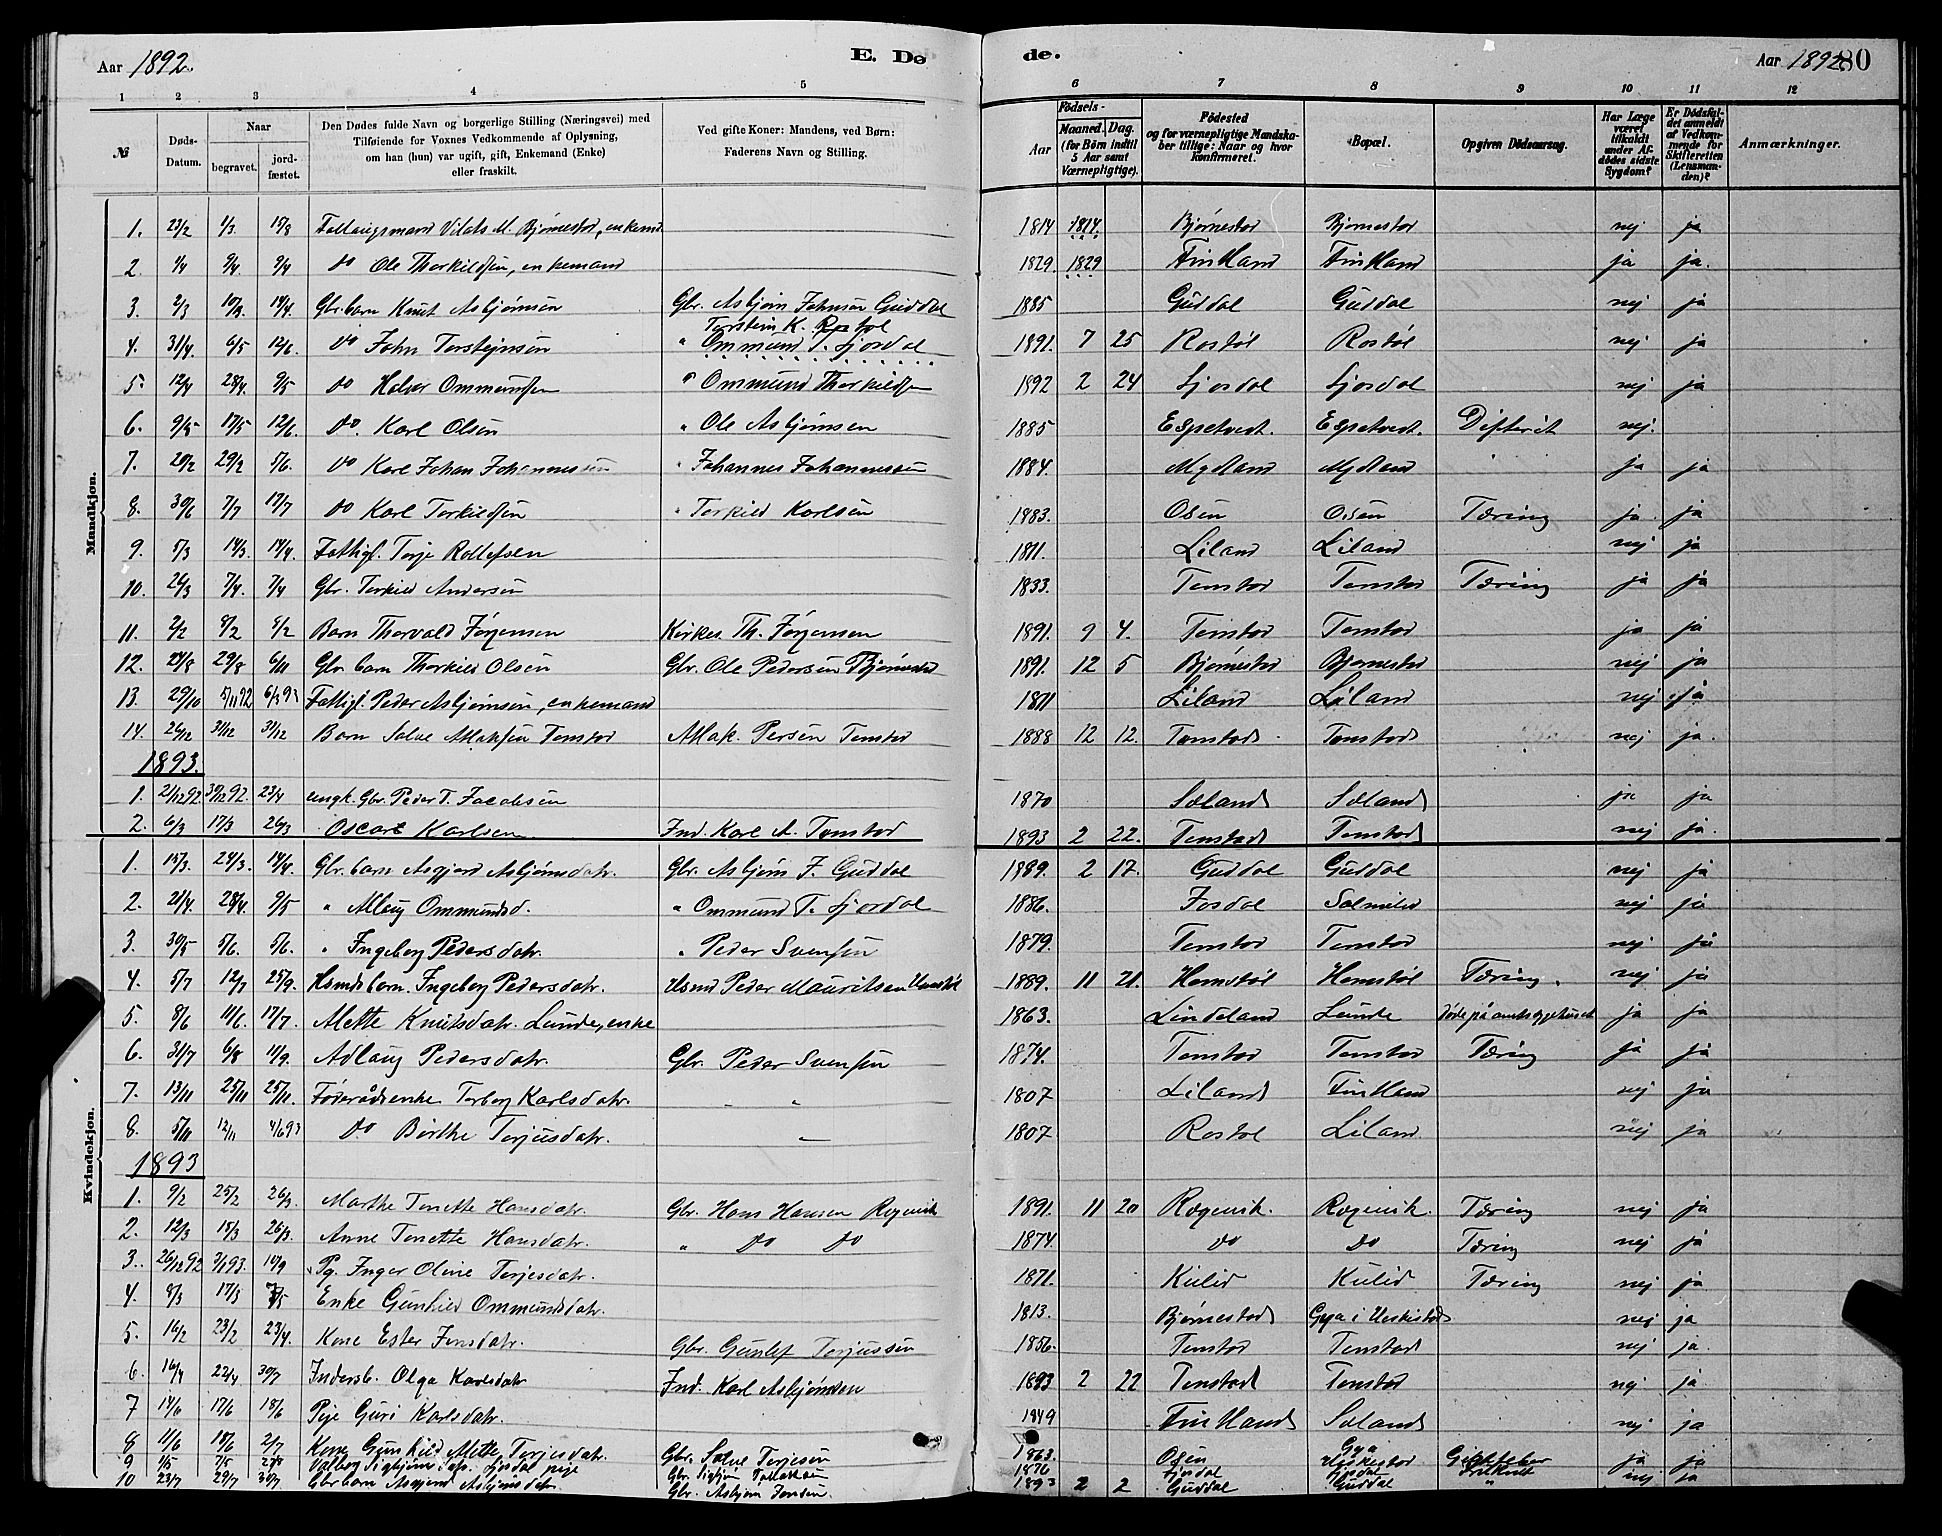 Aar 1892. E. Døde. Aar 1892. 80
1 2 3 4 5 6 7 8 9 10 11 12
№ Døds-Datum. Naar begravet. jordfæstet. Den Dødes fulde Navn og borgerlige Stilling (Næringsvei) med Tilføiende for Voxnes Vedkommende af Oplysning, om han (hun) var ugift, gift, Enkemand (Enke) eller fraskilt. Ved gifte Koner: Mandens, ved Børn: Faderens Navn og Stilling. Fødsels- Aar Maaned. Dag. (for Børn indtil 5 Aar samt Værnepligtige). Fødested og for værnepligtige Mandskaber tillige: Naar og hvor konfirmeret. Bopæl. Opgiven Dødsaarsag. Har Læge været tilkaldt under Afdødes sidste Sygdom? Er Dødsfaldet anmeldt af Vedkommende for Skifteretten (Lensmanden)? Anmærkninger.
Mandkjøn.
1. 23/2 1/3 15/8 Vilats M. Bjørnestad, enkemd 1814 1814 Bjørnestad Bjørnestad nej ja
2. 1/4 9/4 9/4 do Ole Thorkildsen, enkemand 1829 1829 Fintland Fintland ja ja.
3. 2/3 10/3 14/4 Gbr. barn Knut Asbjørnsen Gbr. Asbjørn Johnsen Guddal 1885 Guddal Guddal nej ja
Torstein K. Rostøl
4. 31/4 6/5 12/6 do John Torstejnsen " Ommund T. Sjordal 1891. 7 25 Rostøl Rostøl nej ja
5. 12/4 28/4 9/5 do Halvor Ommundsen " Ommund Thorkildsen 1892 2 24 Sjordal Sjordal nej ja
6. 9/5 17/5 12/6 do. Karl Olsen " Ole Asbjørnsen 1885 Espetvedt. Espetvedt. Difterit nej.
7. 20/2 29/2 5/6 do Karl Johan Johannessen " Johannes Johannessen 1884. Mydland Mydland ja ja
8. 30/6 7/7 17/7 do Karl Torkildsen " Torkild Karlsen 1883. Osen Osen Tæring ja ja
9. 5/3 14/3 14/4 Fattigl. Terje Rollefsen 1811. Liland Liland nej ja
10. 26/3 7/4 7/4 Gbr. Torkild Andersen 1833. Tonstad Tonstad Tæring ja ja
11. 2/2 8/2 8/2 Barn Thorvald Jørgensen Kirkes. Th. Jørgensen 1891. 9 4. Tonstad Tonstad ja ja
12. 24/8 29/8 6/11 Gbr. barn Thorkild Olsen Gbr. Ole Pedersen Bjørnestad 1891. 12 5 Bjørnestad Bjørnestad nej ja
13. 29/10 5/11 92 6/3 93 Fattigl. Peder Asbjørnsen, enkemand 1811 Liland Liland nej ja
14. 26/12 31/12 31/12 Barn Salve Atlaksen Tonstad Atlak Persen Tonstad 1888 12 12. Tonstad Tonstad nej ja.
1893.
1. 21/12 92. 30/12 92. 23/4 ungk. Gbr. Peder T. Jacobsen 1870 Søland Søland ja ja
2. 6/3 17/3 26/3 Oscar Karlsen Ind. Karl A. Tonstad 1893 2 22. Tonstad Tonstad nej ja.
Kvindekjøn.
1. 15/3. 24/3. 14/4. Gbr. barn Asgjerd Asbjørnsdatr. Gbr. Asbjørn J. Guddal 1889. 2 17. Guddal Guddal nej ja
2. 21/4. 28/4. 9/5 " Ommundsd. " Ommund T. Sjordal 1886. Josdal nej ja
3. 30/5 5/6. 5/6. " Ingeborg Pedersdatr. " Peder Svensen 1879. Tonstad Tonstad nej ja
4. 5/7 12/7 25/9. Husmdsbarn. Ingeborg Pedersdatr. Husmd Peder Mauritsen Homstøl 1889. 11 21. Homstøl Homstøl Tæring. nej ja
5. 8/6 11/6. 17/7. Mette Knutsdatr. Lunde, enke 1863. Lindeland Lunde døde på amtssygehuset ja ja
6. 31/7 6/8 11/9. Adlaug Pedersdatr. Gbr. Peder Svensen 1874. Tonstad Tonstad Tæring ja ja
7. 13/11 25/11 25/11. Føderådsenke Torborg Karlsdatr. " " 1807 Liland Fintland nej ja
8. 5/11 12/11 4/6 93 do Berthe Terjusdatr. " 1807 Rostøl Liland nej ja
1893
1. 9/2 25/2 26/3. Marthe Tonette Hansdatr. Gbr. Hans Hansen Røgenvik 1891. 11 20 Røgenvik. Røgenvik. Tæring nej ja
2. 12/3 15/3 26/3. Anne Tonette Hansdatr. " do do 1874. do do Tæring nej ja
3. 26/12 92 3/1 93. 14/9 Pg. Inger Oline Terjesdatr. 1871. Kulid Kulid Tæring nej ja
4. 8/3 17/3 7/5 Enke Gunhild Ommundsdatr. 1813. Bjørnestad Gya i Heskestad nej ja
5. 16/2 23/2 23/4. Kone Ester Jonsdatr. Gbr. Gunlef Terjussen 1856. Tonstad Tonstad nej ja.
6. 16/4 22/4 30/7 Indersb. Olga Karlsdatr. Ind. Karl Asbjørnsen 1893 2 22 Tonstad Tonstad nej ja
7 14/6 17/6 18/6 Pige Guri Karlsdatr. 1849 Fintland Søland nej ja
8 11/6 18/6 2/7 Kone Gunhild Mette Terjesdatr. Gbr. Salve Terjesen 1863. Osen Gya Heskestad Gigtfeber ja ja
9 1/5 7/5 27/8 Valborg Sigbjørnsdatr. Sjordal pige Gbr. Sigbjørn 1876 Sjordal Sjordal
10 23/7 29/7 30/7 Gbr. barn Asgjerd Asbjørnsdatr. Gbr. Asbjørn Jonsen. 1893 2 2 Guddal Guddal " nej ja